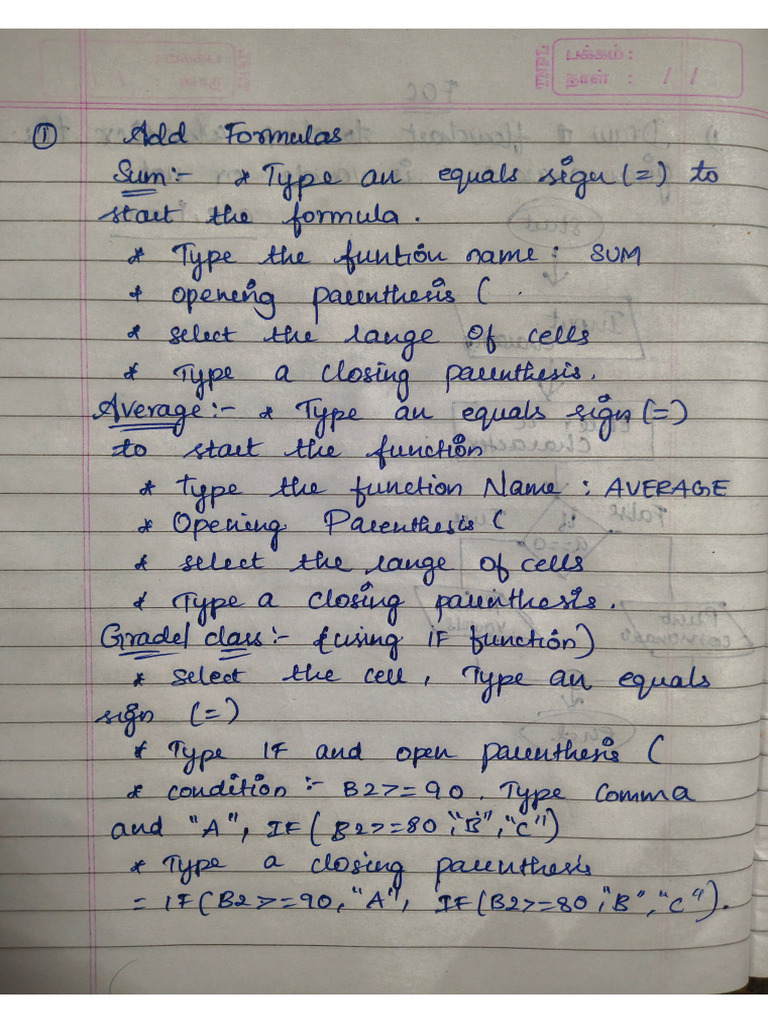 TNPL பக்கம் :
நாள் : / /
① Add Formulas
Sum:- * Type an equals sign (=) to
start the formula.
* Type the funtion name : SUM
* opening parenthesis (
* select the range of cells
* Type a closing parenthesis.
Average:- * Type an equals sign (=)
to start the function
* Type the function Name : AVERAGE
* Opening Parenthesis (
* select the range of cells
* Type a closing parenthesis.
Grade/class:- (using IF function)
* select the cell, Type an equals
sign (=)
* Type IF and open parenthesis (
* condition :- B2>=90. Type Comma
and "A", IF(B2>=80,"B","C")
* Type a closing parenthesis
= IF(B2>=90,"A", IF(B2>=80,"B","C").